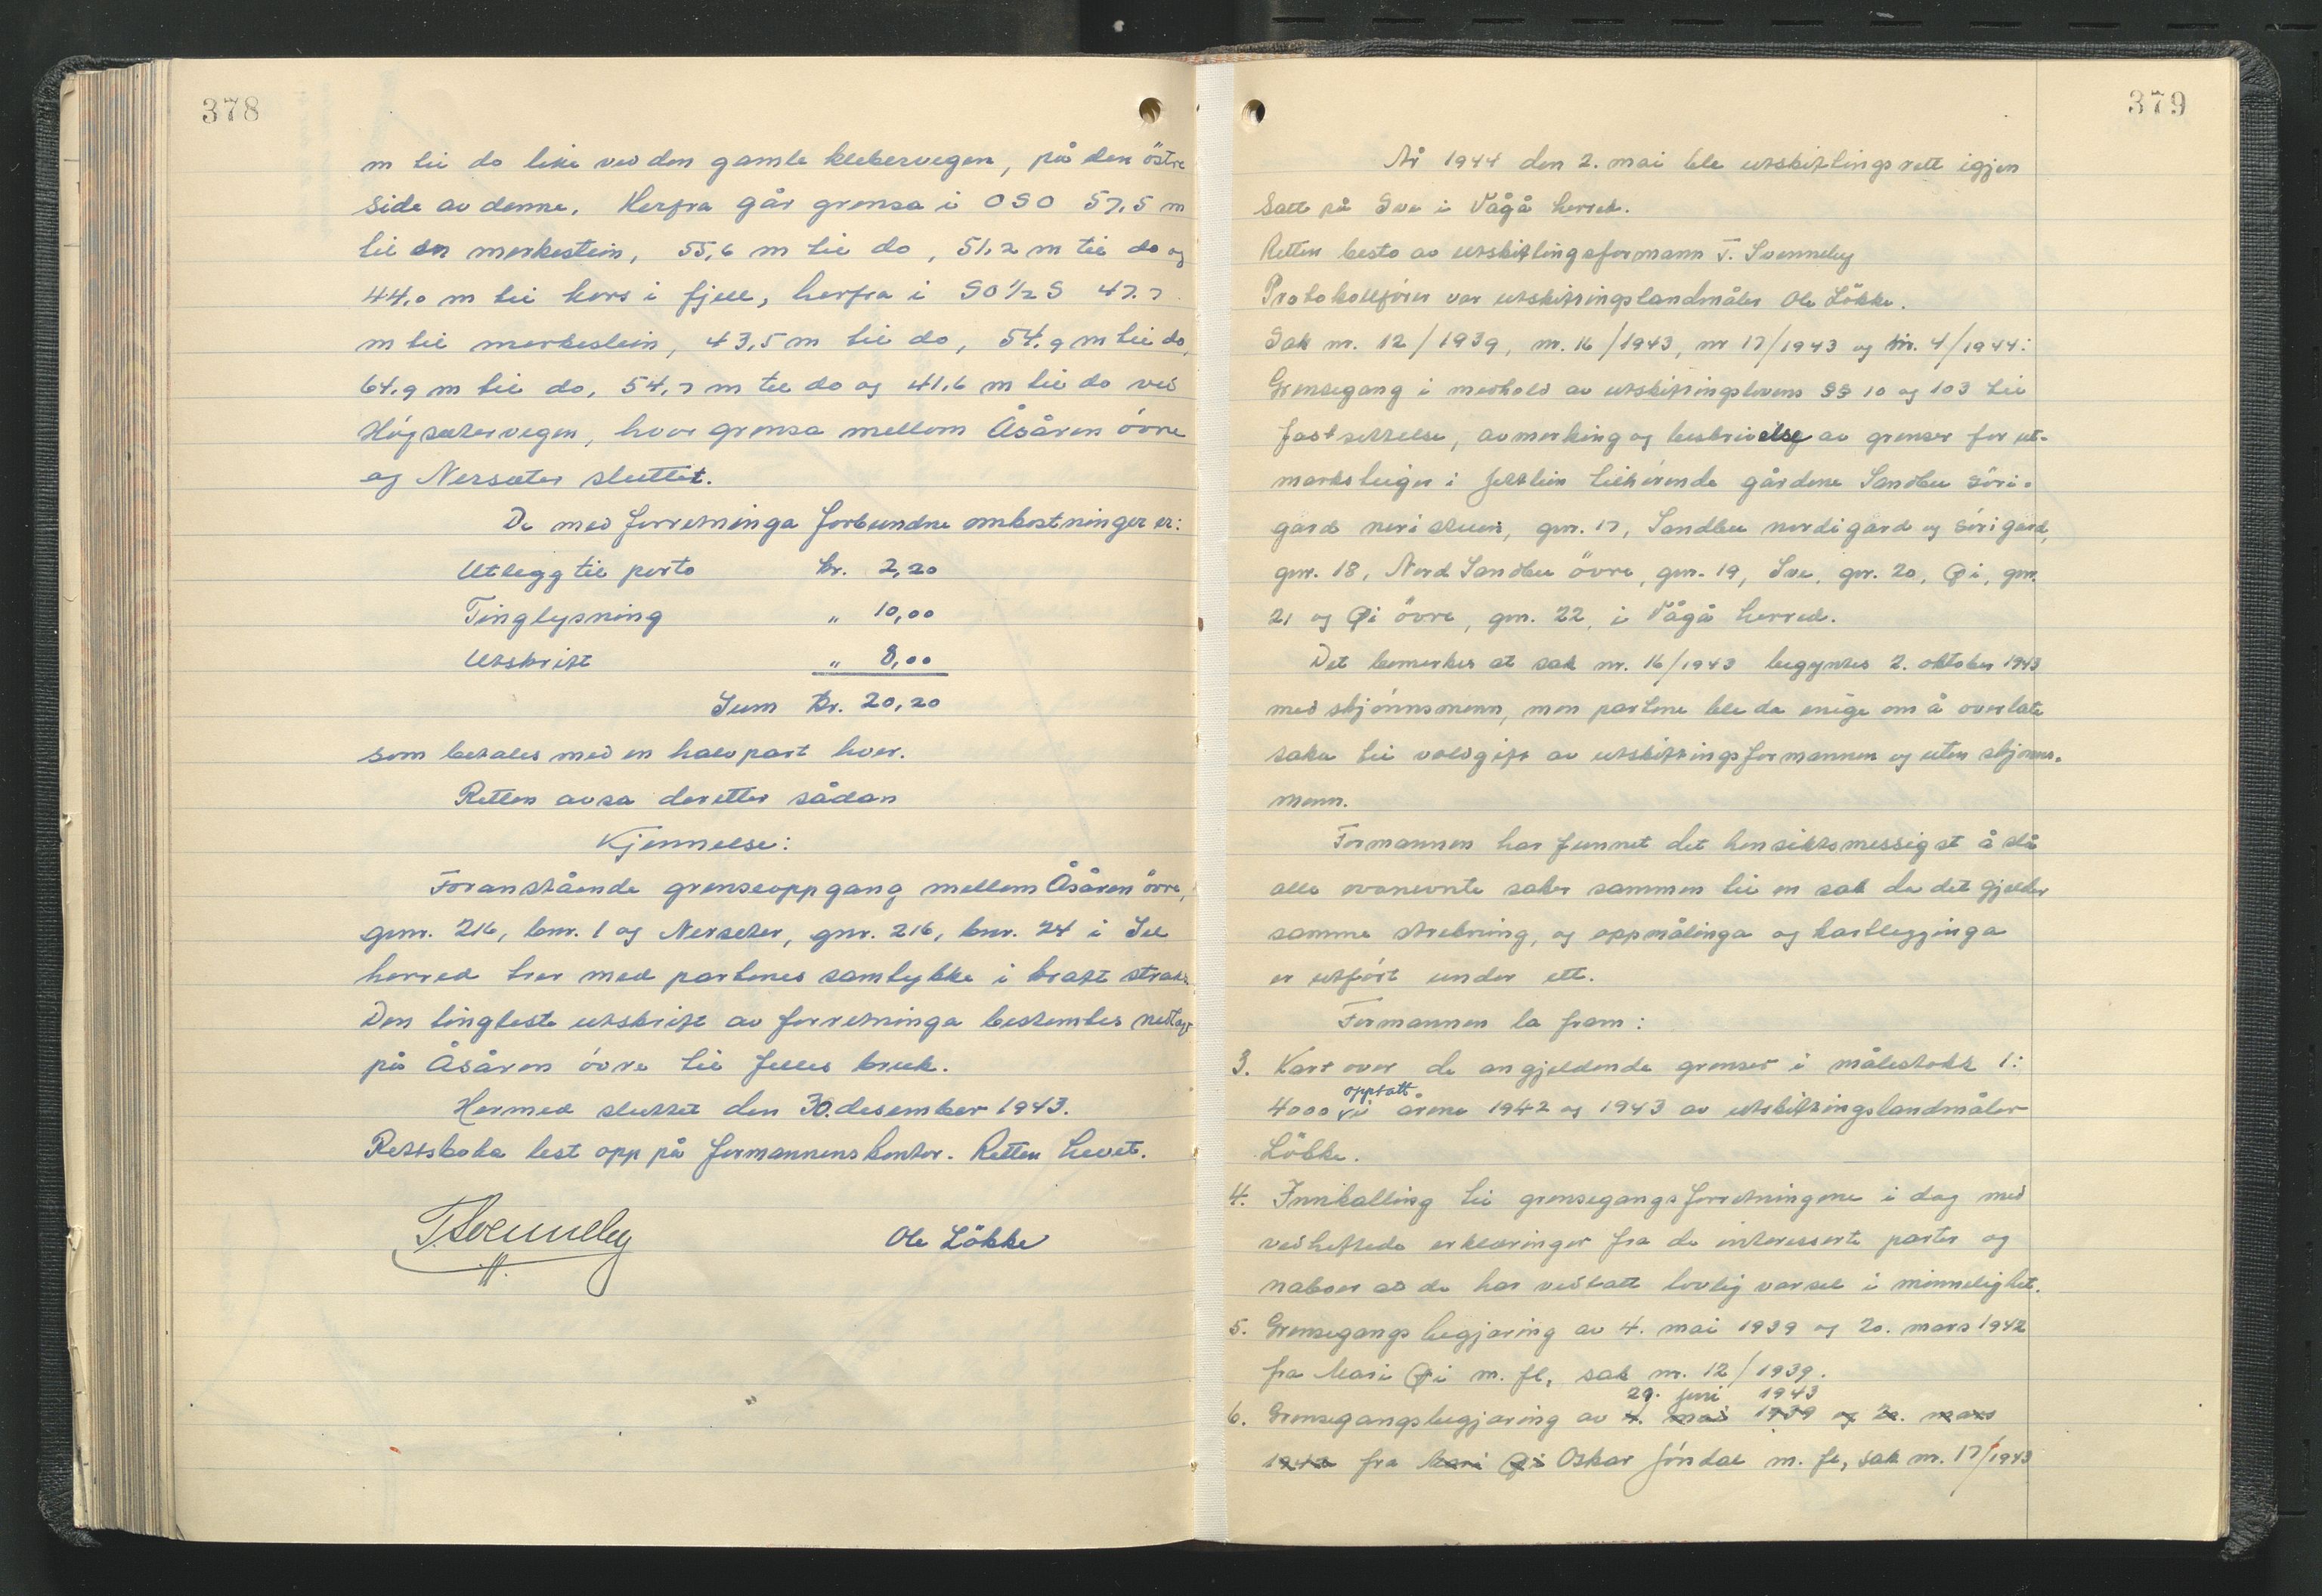 378
m til do like ved den gamle klebervegen, på den östre
side av denne. Herfra går grensa i OSO 57,5 m
til en merkestein, 55,6 m til do, 51,2 m til do og
44,0 m til kors i fjell, herfra i SO½S 47,7
m til merkestein, 43,5 m til do, 54,9 m til do,
64,9 m til do, 54,7 m til do og 41,6 m til do ved
Högsætervegen, hvor grensa mellom Åsåren övre
og Nersæter sluttet.
De med forretninga forbundne omkostninger er:
Utlegg til porto kr. 2,20
Tinglysning " 10,00
Utskrift " 8,00
Sum kr. 20,20
som betales med en halvpart hver.
Retten avsa deretter sådan
Kjennelse:
Foranstående grenseoppgang mellom Åsåren övre,
gnr. 216, bnr. 1 og Nerseter, gnr. 216, bnr. 24 i Sel
herred trer med partenes samtykke i kraft straks.
Den tingleste utskrift av forretninga bestemtes nedlagt
på Åsåren övre til felles bruk.
Hermed sluttet den 30. desember 1943.
Rettsboka lest opp på formannens kontor. Retten hevet.
T. Svenneby Ole Lökke
379
År 1944 den 2. mai ble utskiftingsrett igjen
satt på Sve i Vågå herred.
Retten besto av utskiftingsformann T. Svenneby
Protokollfører var utskiftningslandmåler Ole Lökke.
Sak nr. 12/1939, nr. 16/1943, nr 17/1943 og nr. 4/1944:
Grensegang i medhold av utskiftningslovens §§ 10 og 103 til
fastsettelse, avmerking og beskrivelse av grenser for ut-
marksteiger i fellslien tilhörende gårdene Sandbu söri-
gard neristuen, gnr. 17, Sandbu nordigard og sörigard,
gnr. 18, Nord Sandbu övre, gnr. 19, Sve, gnr. 20, Øi, gnr.
21 og Øi övre, gnr. 22, i Vågå herred.
Det bemerkes at sak nr. 16/1943 begyntes 2. oktober 1943
med skjönnsmenn, men partene ble da enige om å overlate
saka til voldgift av utskiftningsformannen og uten skjönns-
menn.
Formannen har funnet det hensiktsmessigst å slå
alle ovanevnte saker sammen til en sak da det gjelder
samme strekning, og oppmålinga og kartlegginga
er utfört under ett.
Formannen la fram:
3. Kart over de angjeldende grenser i målestokk 1:
opptatt
4000 i årene 1942 og 1943 av utskiftningslandmåler
Lökke.
4. Innkalling til grensegangsforretningene i dag med
vedheftede erklæringer fra de interesserte parter og
naboer at de har vedtatt lovlig varsel i minnelighet.
5. Grensegangsbegjæring av 4. mai 1939 og 20. mars 1942
fra Mari Øi m. fl, sak nr. 12/1939.
29. juni 1943
6. Grensegangsbegjæring av 4. mai 1939 og 20. mars
1942 fra Mari Øi Oskar Jöndal m. fl, sak nr. 17/1943